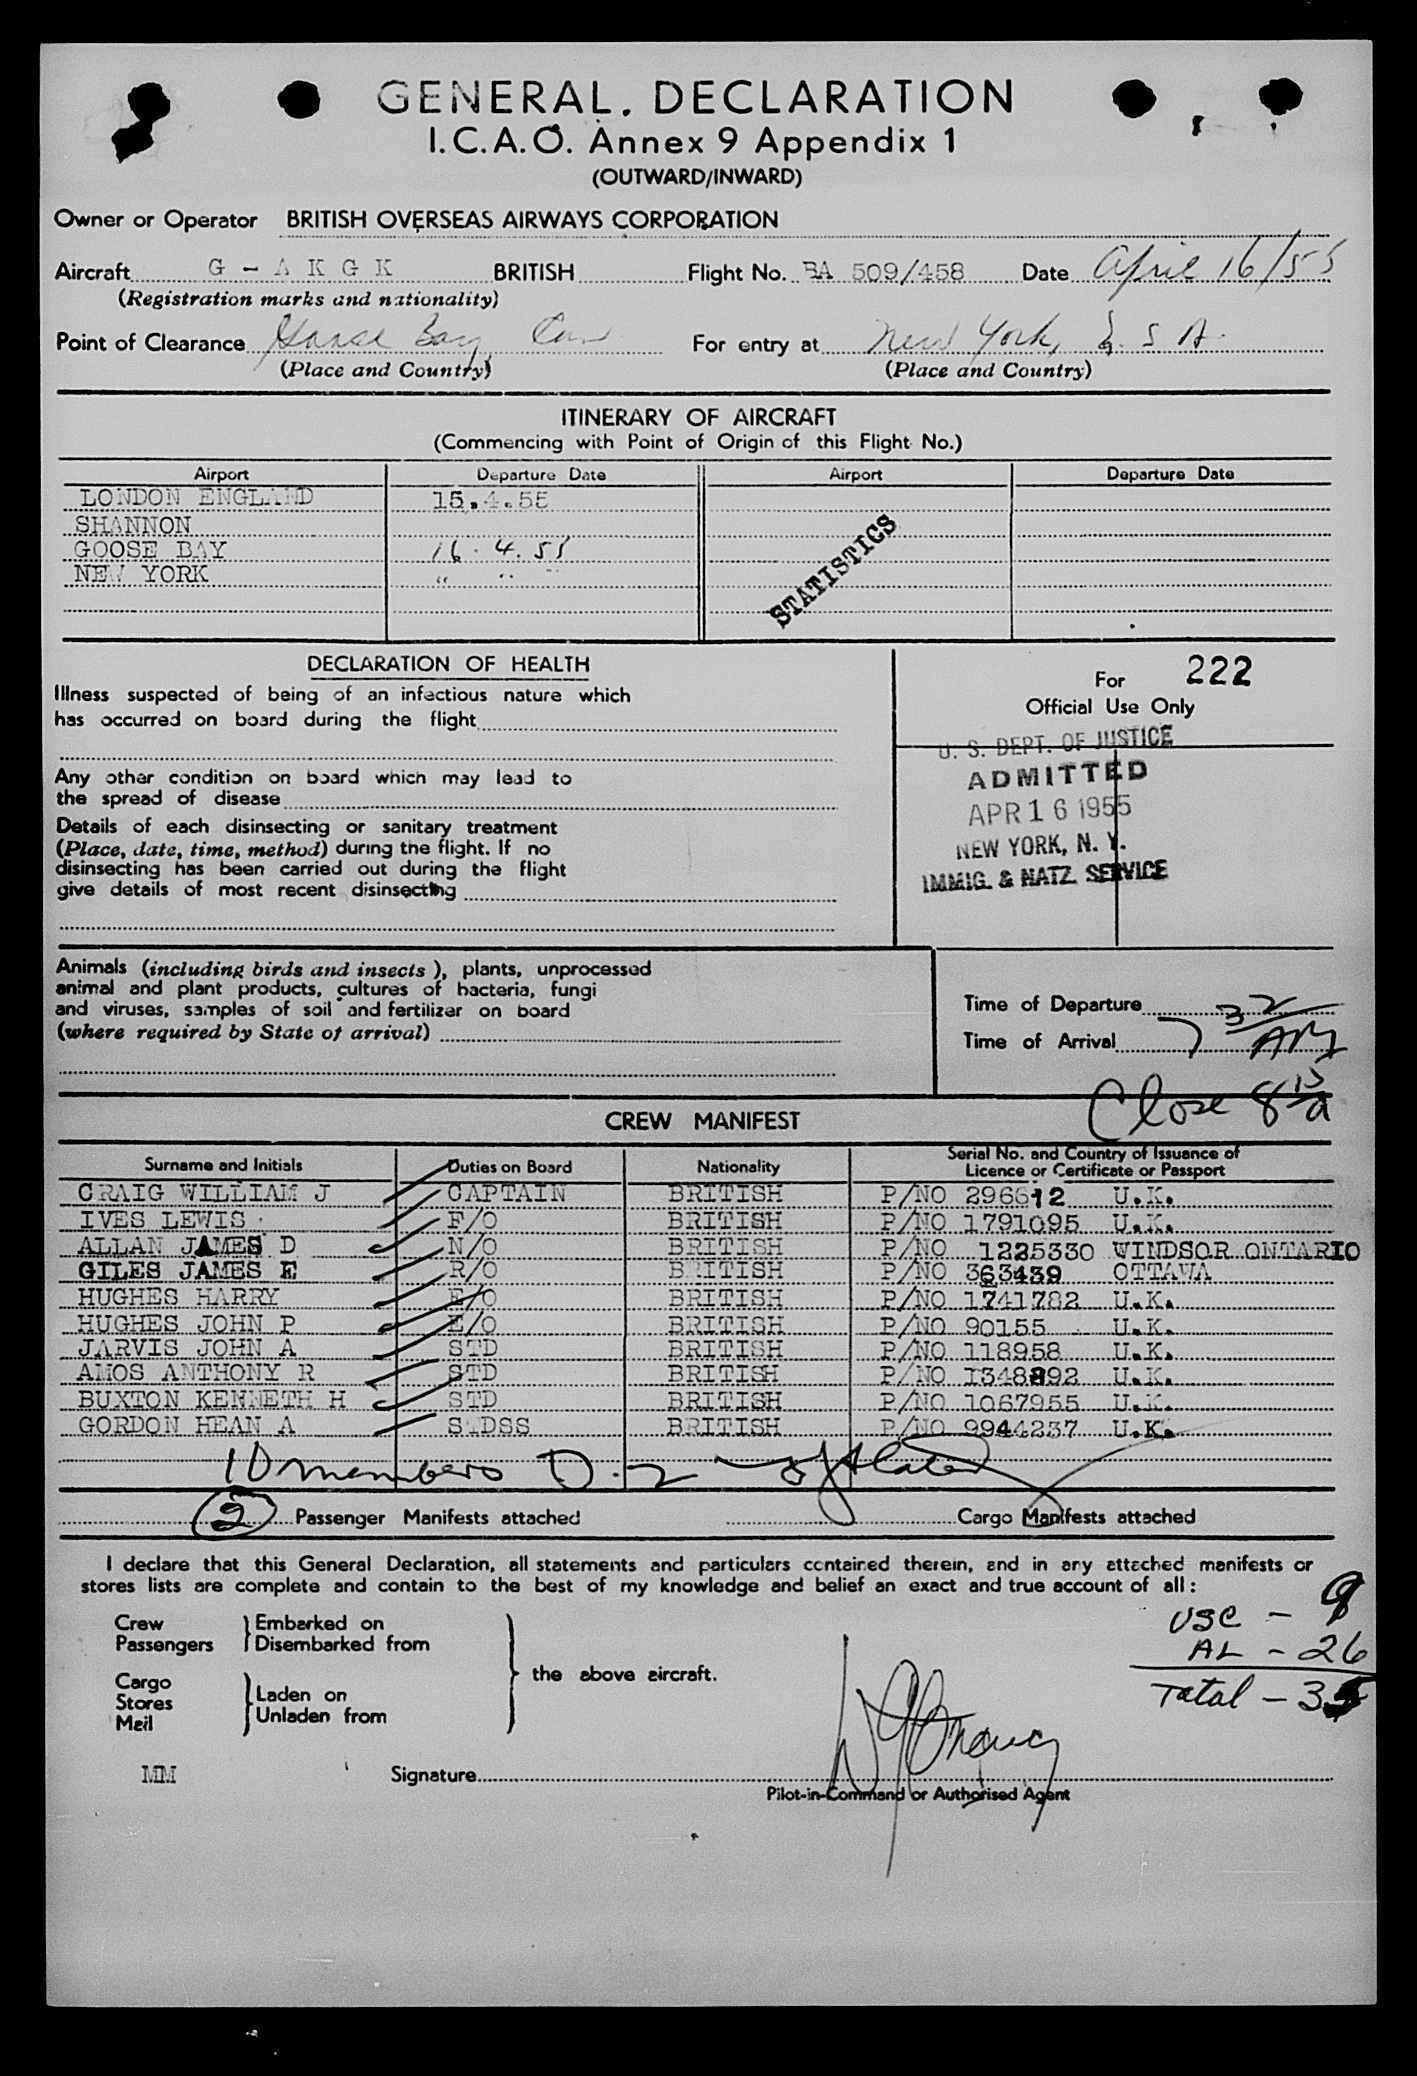 GENERAL DECLARATION
I.C.A.O. Annex 9 Appendix 1
(OUTWARD/INWARD)
Owner or Operator BRITISH OVERSEAS AIRWAYS CORPORATION
Aircraft G - A K G K BRITISH Flight No. BA 509/458 Date April 16/55
(Registration marks and nationality)
Point of Clearance Goose Bay, Can For entry at New York, U. S A.
(Place and Country) (Place and Country)
ITINERARY OF AIRCRAFT
(Commencing with Point of Origin of this Flight No.)
Airport Departure Date Airport Departure Date
LONDON ENGLAND 15.4.55
SHANNON
GOOSE BAY 16. 4. 55
NEW YORK " " "
STATISTICS
DECLARATION OF HEALTH
Illness suspected of being of an infectious nature which
has occurred on board during the flight
Any other condition on board which may lead to
the spread of disease
Details of each disinsecting or sanitary treatment
(Place, date, time, method) during the flight. If no
disinsecting has been carried out during the flight
give details of most recent disinsecting
For 222
Official Use Only
U. S. DEPT. OF JUSTICE
ADMITTED
APR 16 1955
NEW YORK, N. Y.
IMMIG. & NATZ. SERVICE
Animals (including birds and insects), plants, unprocessed
animal and plant products, cultures of bacteria, fungi
and viruses, samples of soil and fertilizer on board
(where required by State of arrival)
Time of Departure
Time of Arrival 7 32 AM
Close 8 15 a
CREW MANIFEST
Surname and Initials Duties on Board Nationality Serial No. and Country of Issuance of Licence or Certificate or Passport
CRAIG WILLIAM J CAPTAIN BRITISH P/NO 296612 U.K.
IVES LEWIS F/O BRITISH P/NO 1791095 U.K.
ALLAN JAMES D N/O BRITISH P/NO 1225330 WINDSOR ONTARIO
GILES JAMES E R/O BRITISH P/NO 363439 OTTAWA
HUGHES HARRY E/O BRITISH P/NO 1741782 U.K.
HUGHES JOHN P E/O BRITISH P/NO 90155 U.K.
JARVIS JOHN A STD BRITISH P/NO 118958 U.K.
AMOS ANTHONY R STD BRITISH P/NO 1348892 U.K.
BUXTON KENNETH H STD BRITISH P/NO 1067955 U.K.
GORDON HEAN A STDSS BRITISH P/NO 9944237 U.K.
10 members D.2
2 Passenger Manifests attached Cargo Manifests attached
I declare that this General Declaration, all statements and particulars contained therein, and in any attached manifests or
stores lists are complete and contain to the best of my knowledge and belief an exact and true account of all:
Crew Embarked on
Passengers Disembarked from
the above aircraft.
Cargo
Stores Laden on
Mail Unladen from
USC - 9
AL - 26
Total - 35
MM Signature
Pilot-in-Command or Authorised Agent